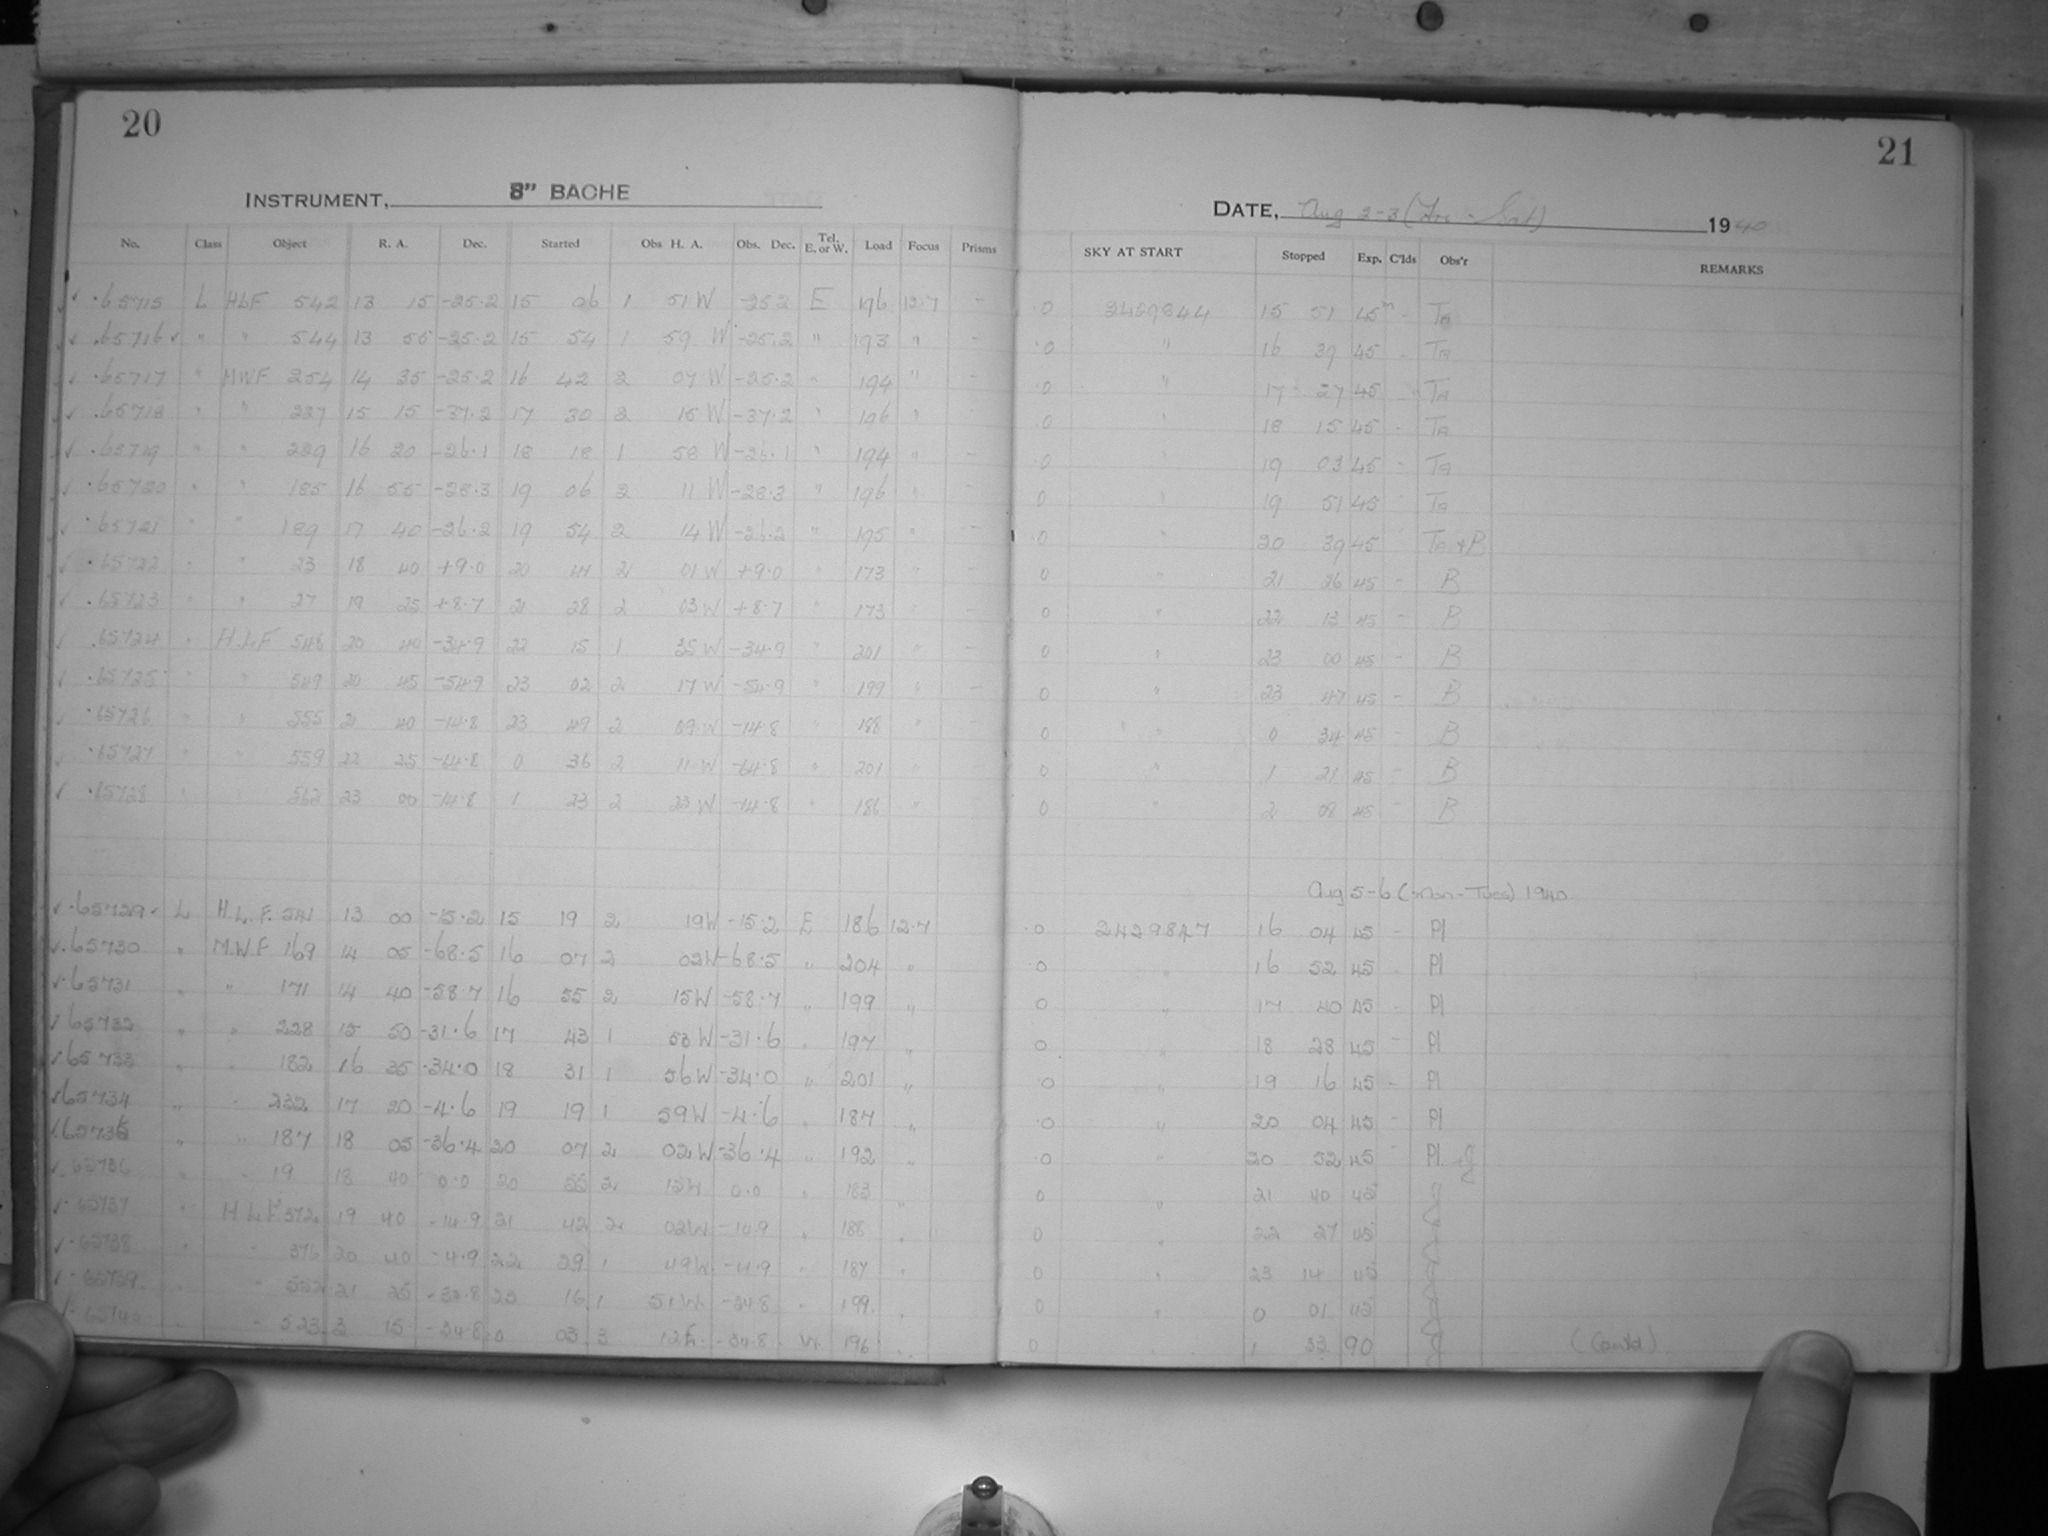 20
INSTRUMENT, 8" BACHE
No. Class Object R. A. Dec. Started Obs H. A. Obs. Dec. Tel. E. or W. Load Focus Prisms
.65715 L HLF 542 13 15 -25.2 15 06 1 51 W -25.2 E 196 12.7 -
.65716 " " 544 13 55 -25.2 15 54 1 59 W -25.2 " 193 " -
.65717 " MWF 254 14 35 -25.2 16 42 2 07 W -25.2 " 194 " -
.65718 " " 227 15 15 -37.2 17 30 2 15 W -37.2 " 196 " -
.65719 " " 229 16 20 -26.1 18 18 1 58 W -26.1 " 194 " -
.65720 " " 185 16 55 -28.3 19 06 2 11 W -28.3 " 196 " -
.65721 " " 189 17 40 -26.2 19 54 2 14 W -26.2 " 195 " -
.65722 " " 23 18 40 +9.0 20 41 2 01 W +9.0 " 173 " -
.65723 " " 27 19 25 +8.7 21 28 2 03 W +8.7 " 173 " -
.65724 " H.L.F 20 40 -34.9 22 15 1 35 W -34.9 " 201 " -
.65725 " " 549 20 45 -54.9 23 02 2 17 W -54.9 " 199 " -
.65726 " " 555 21 40 -14.8 23 49 2 09 W -14.8 " 188 " -
.65727 " " 559 22 25 0 36 2 11 W -64.8 " 201 "
.65728 " " 562 23 00 -14.8 1 23 2 23 W -14.8 " 186 "
.65729 L H.L.F. 541 13 00 -15.2 15 19 2 19W -15.2 E 186 12.7
.65730 " M.W.F 169 14 05 -68.5 16 07 2 02W -68.5 " 204 "
.65731 " " 171 14 40 -58.7 16 55 2 15W -58.7 " 199 "
65732 " " 228 15 50 -31.6 17 43 1 53W -31.6 " 197 "
65733 " " 182 16 35 -34.0 18 31 1 56W -34.0 " 201 "
65734 " " 232 17 20 -4.6 19 19 1 59W -4.6 " 187 "
.65735 " " 187 18 05 -36.4 20 07 2 02W -36.4 " 192 "
.65736 " 19 18 40 0.0 20 55 2 15W 0.0 " 183 "
.65737 " H L F 372 19 40 -14.9 21 42 2 02W -14.9 " 188 "
.65738 " " 376 20 40 -4.9 22 29 1 49W -4.9 " 187 "
.65739 " " 21 25 23 16 1 51W -34.8 " 199 "
.65740 " " 523 3 15 -34.8 0 03 3 12E -34.8 W 196 "
21
DATE, Aug 2-3 (Fri - Sat) 1940
SKY AT START Stopped Exp. C'lds Obs'r REMARKS
.0 2429844 15 51 45m - TA
.0 " 16 39 45 - TA
.0 " 17 27 45 - TA
.0 " 18 15 45 - TA
.0 " 19 03 45 - TA
0 " 19 51 45 TA
.0 " 20 39 45 TA + B
0 " 21 26 45 - B
0 " 22 13 45 - B
0 " 23 00 45 - B
0 " 23 47 45 - B
0 " 0 34 45 - B
0 " 1 21 45 - B
0 " 2 08 45 - B
Aug 5-6 (Mon - Tues) 1940
.0 2429847 16 04 45 - Pl
.0 " 16 52 45 - Pl
0 " 17 40 45 - Pl
0 " 18 28 45 - Pl
.0 " 19 16 45 - Pl
.0 " 20 04 45 - Pl
.0 " 20 52 45 - Pl. + g
0 " 21 40 45 g
0 " 22 27 45 g
0 " 23 14 45 g
0 " 0 01 45 g
0 1 33 90 g (Contd)